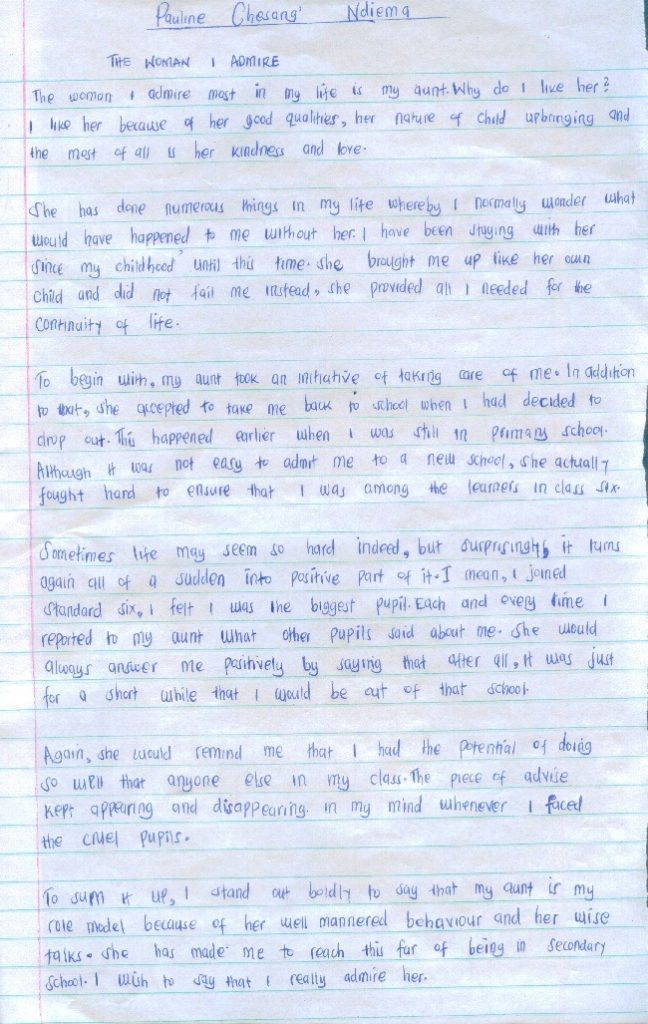 Pauline Chesang' Ndiema
THE WOMAN I ADMIRE
The woman I admire most in my life is my aunt. Why do I like her?
I like her because of her good qualities, her nature of child upbringing and
the most of all is her kindness and love.
She has done numerous things in my life whereby I normally wonder what
would have happened to me without her. I have been staying with her
since my childhood until this time. She brought me up like her own
child and did not fail me instead, she provided all I needed for the
continuity of life.
To begin with, my aunt took an initiative of taking care of me. In addition
to that, she accepted to take me back to school when I had decided to
drop out. This happened earlier when I was still in primary school.
Although it was not easy to admit me to a new school, she actually
fought hard to ensure that I was among the learners in class six.
Sometimes life may seem so hard indeed, but surprisingly, it turns
again all of a sudden into positive part of it. I mean, I joined
standard six, I felt I was the biggest pupil. Each and every time I
reported to my aunt what other pupils said about me. She would
always answer me positively by saying that after all, it was just
for a short while that I would be out of that school.
Again, she would remind me that I had the potential of doing
so well that anyone else in my class. The piece of advise
kept appearing and disappearing in my mind whenever I faced
the cruel pupils.
To sum it up, I stand out boldly to say that my aunt is my
role model because of her well mannered behaviour and her wise
talks. She has made me to reach this far of being in secondary
school. I wish to say that I really admire her.